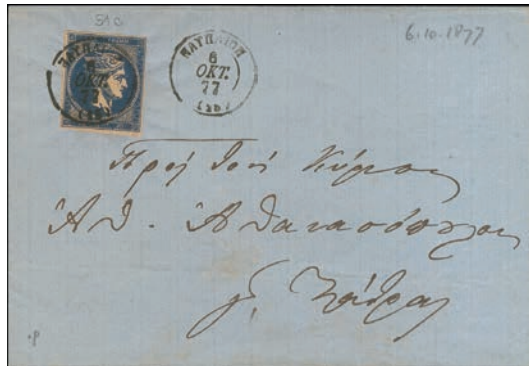 51c
6.10.1877
ΝΑΥΠΛΙΟΝ
6
ΟΚΤ.
77
(26)
ΝΑΥΠΛΙΟΝ
6
ΟΚΤ.
77
(26)
Πρὸς τὸν Κύριον
Ἀθ. Ἀθανασόπουλον
Πάτρας